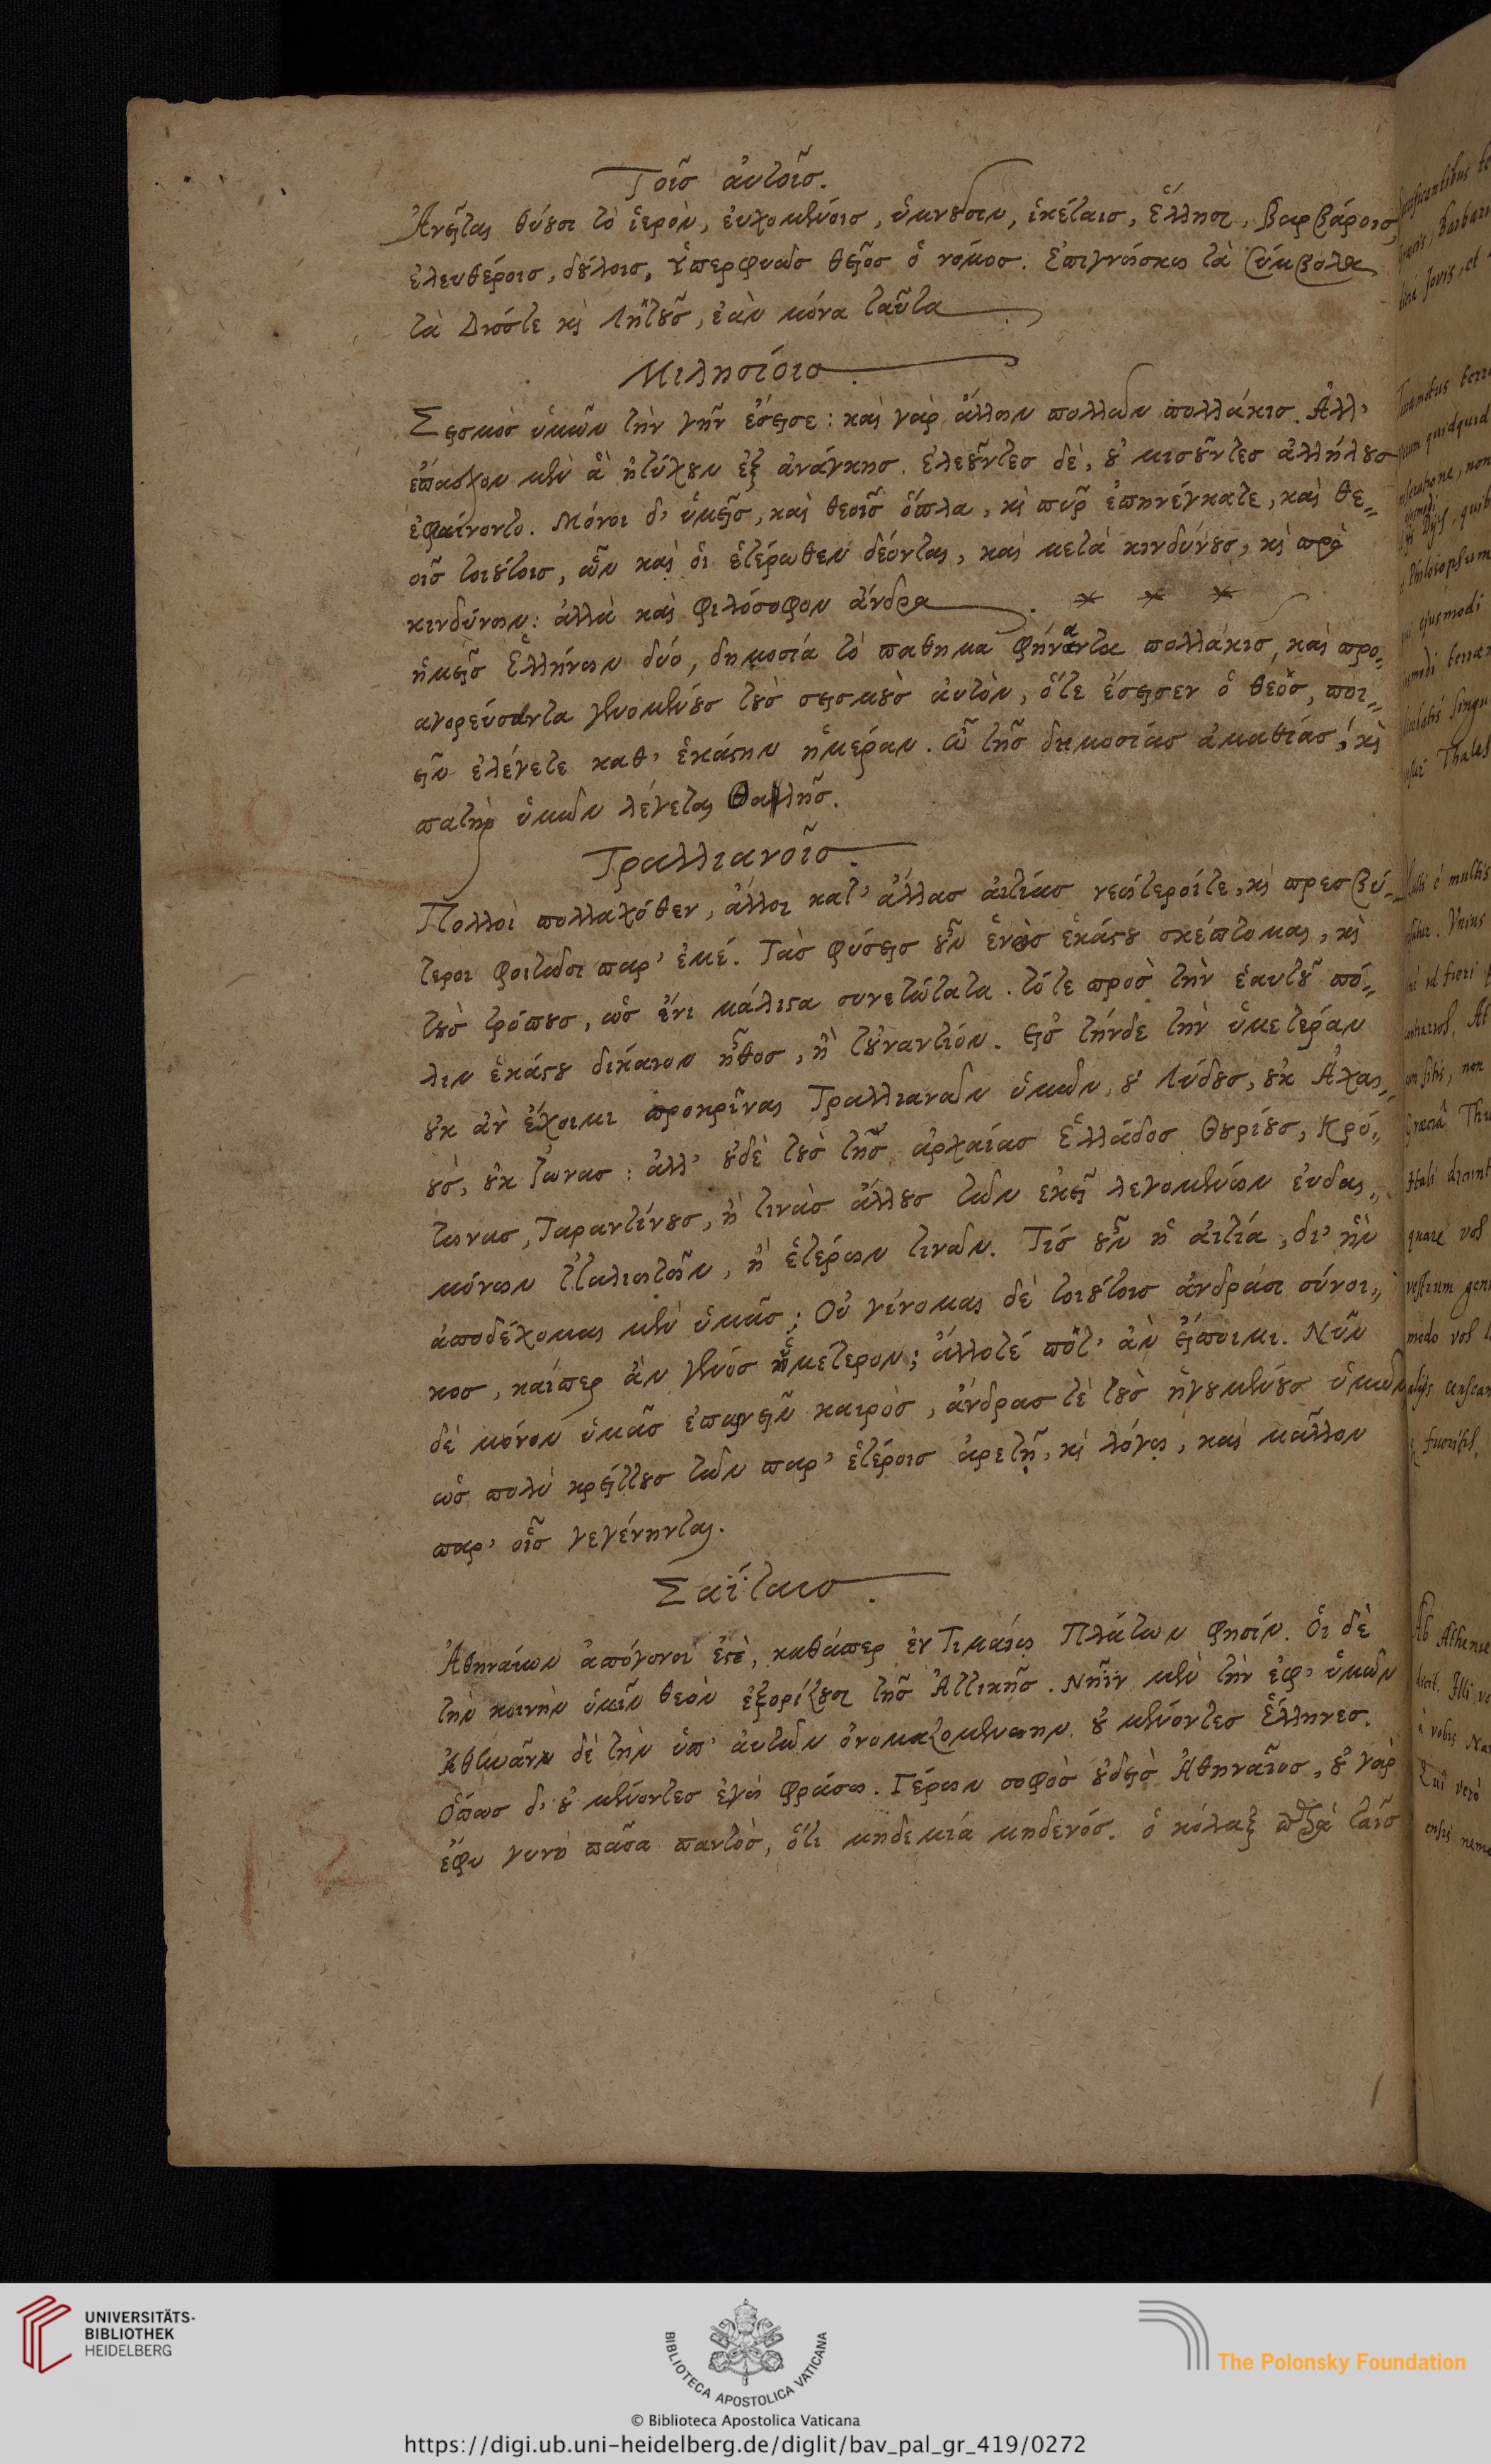 Τοῖς ἀυτοῖς.
Ἀνεῖται θύουσι τὸ ἱερὸν, ἐυχομένοις, ὑμνοῦσιν, ἱκέταις, Ἕλλησι, βαρβάροις,
ἐλευθέροις, δούλοις, Ὑπερφυῶς θεῖος ὁ νόμος. Ἐπιγνώσκω τὰ σύμβολα
τὰ Διόστε καὶ Λητοῦς, ἐὰν μόνα ταῦτα
Μιλησίοις.
Σεισμὸς ὑμῶν τὴν γῆν ἔσεισε: καὶ γὰρ ἄλλων πολλῶν πολλάκις. Ἀλλ'
ἔπασχον μὲν ἃ ἠτύχουν ἐξ ἀνάγκης. ἐλεοῦντες δὲ, οὐ μισοῦντες ἀλλήλους
ἐφαίνοντο. Μόνοι δ' ὑμεῖς, καὶ θεοῖς ὅπλα, καὶ πῦρ ἐπηνέγκατε, καὶ θε„
οῖς τοιούτοις, ὧν καὶ ὁι ἑτέρωθεν δέονται, καὶ μετὰ κινδύνους, καὶ πρὸ
κινδύνων: ἀλλὰ καὶ φιλόσοφον ἄνδρα . * * *
ἡμεῖς Ἑλλήνων δύο, δημοσίᾳ τὸ παθημα φήναντα πολλάκις, καὶ προ„
αγορεύσαντα γενομένους τοὺς σεισμοὺς ἀυτὸν, ὅτε ἔσεισεν ὁ θεὸς, ποι„
εῖν ἐλέγετε καθ' ἑκάστην ἡμέραν. Ὢ τῆς δημοσίας ἀμαθίας, καὶ
πατὴρ ὑμῶν λέγεται Θαλῆς.
Τραλλιανοῖς.
Πολλοὶ πολλαχόθεν, ἄλλοι κατ' ἄλλας ἀιτίας νεώτεροίτε, καὶ πρεσβύ„
τεροι φοιτῶσι παρ' ἐμέ. Τὰς φύσεις οὖν ἑνὸς ἑκάστου σκέπτομαι, καὶ
τοὺς τρόπους, ὡς ἔνι μάλιστα συνετώτατα. τότε πρὸς τὴν ἑαυτοῦ πό„
λιν ἑκάστου δίκαιον ἦθος, ἢ τοὐναντίον. εἰς τήνδε τὴν ὑμετέραν
οὐκ ἂν ἔχοιμι προκρῖναι Τραλλιανῶν ὑμῶν, οὐ Λύδους, οὐκ Ἀχαι„
οὺς, οὐκ Ἴωνας: ἀλλ' οὐδὲ τοὺς τῆς ἀρχαίας Ἑλλάδος Θουρίους, Κρό„
τωνας, Ταραντίνους, ἢ τινὰς ἄλλους τῶν ἐκεῖ λεγομένων ἐυδαι„
μόνων Ἰταλιωτῶν, ἢ ἑτέρων τινῶν. Τίς οὖν ἡ ἀιτία, δι' ἣν
ἀποδέχομαι μὲν ὑμᾶς; Οὐ γίνομαι δὲ τοιούτοις ἀνδράσι σύνοι„
κος, καίπερ ὢν γένος ὑμέτερον; ἄλλοτέ πὸτ' ἂν εἴποιμι. Νῦν
δὲ μόνον ὑμᾶς ἐπαινεῖν καιρὸς, ἄνδρας τὲ τοὺς ἡγουμένους ὑμῶν
ὡς πολὺ κρείττους τῶν παρ' ἑτέροις ἀρετῇ, καὶ λόγῳ, καὶ μᾶλλον
παρ' οἷς γεγένηνται.
Σαΐταις.
Ἀθηναίων ἀπόγονοί ἐστὲ, καθάπερ ἐν Τιμαίῳ Πλάτων φησίν. Ὁι δὲ
τὴν κοινὴν ὑμῖν θεὸν ἐξορίζουσι τῆς Ἀττικῆς. Νηῒν μὲν τὴν ἐφ' ὑμῶν
Ἀθηνᾶν δὲ τὴν ὑπ' ἀυτῶν ὀνομαζομένην. οὐ μένοντες Ἕλληνες.
Ὅπως δ' οὐ μένοντες ἐγὼ φράσω. Γέρων σοφὸς οὐδεὶς Ἀθηναῖος, οὐ γὰρ
ἔφυ γυνὴ πᾶσα παντὸς, ὅτι μηδεμιᾷ μηδενός. ὁ κόλαξ παρὰ ταῖς
UNIVERSITÄTS-
BIBLIOTHEK
HEIDELBERG
BIBLIOTECA APOSTOLICA VATICANA
The Polonsky Foundation
© Biblioteca Apostolica Vaticana
https://digi.ub.uni-heidelberg.de/diglit/bav_pal_gr_419/0272